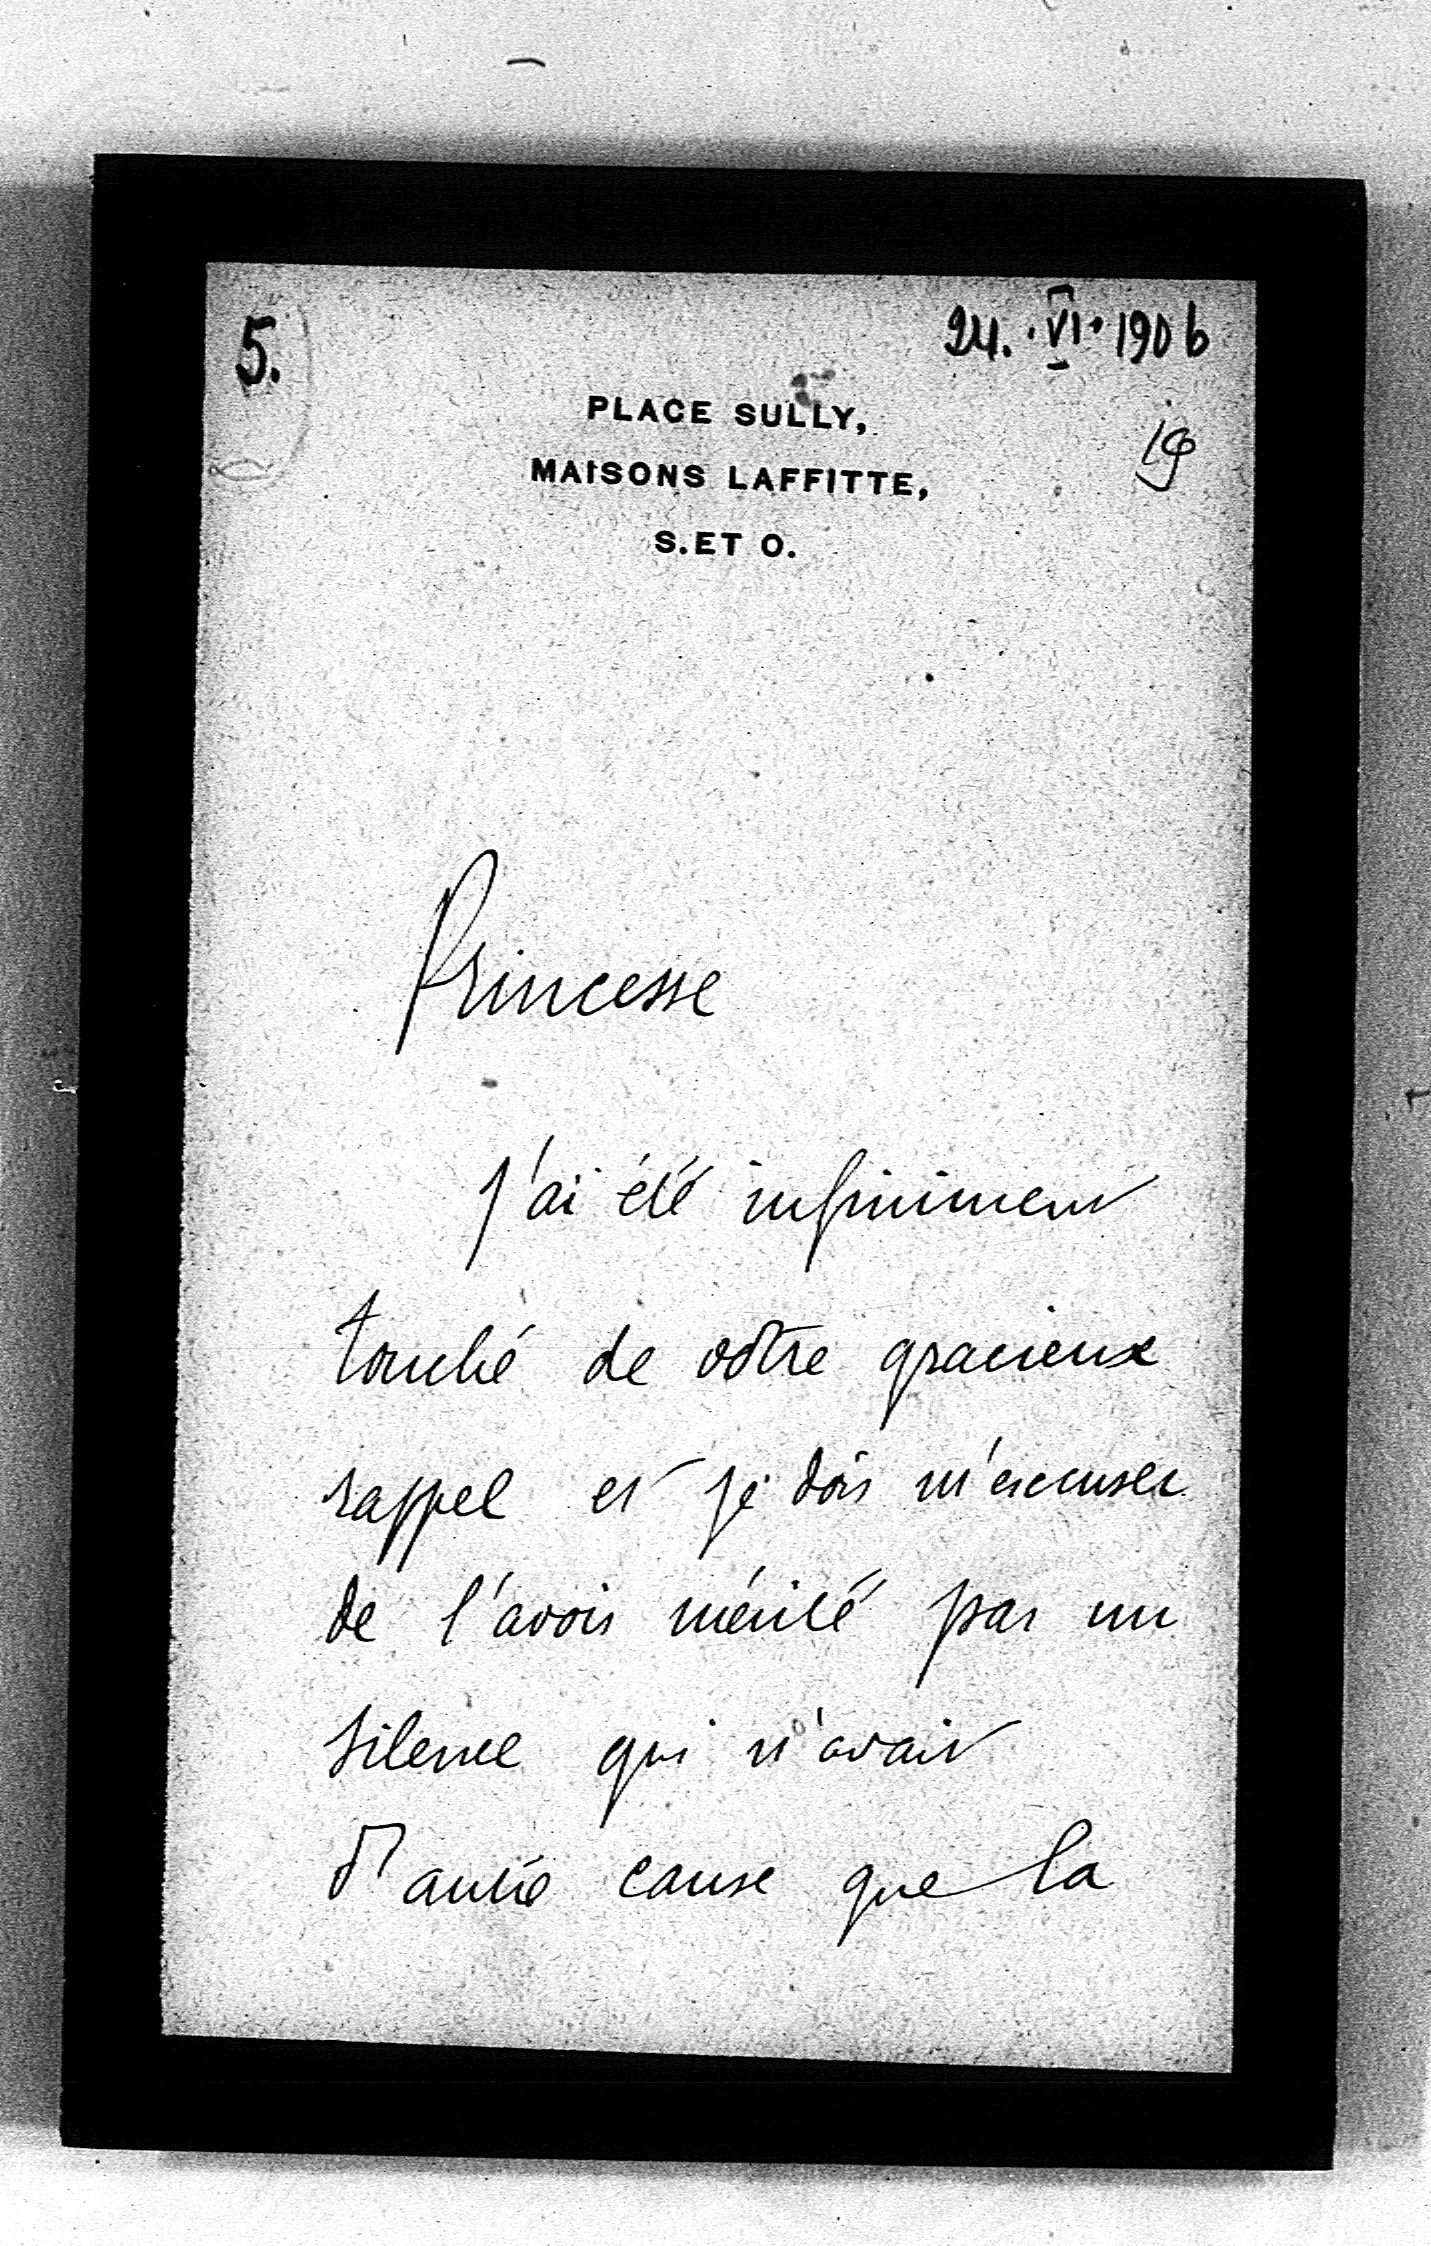 5.
24. VI. 1906
PLACE SULLY,
MAISONS LAFFITTE,
S. ET O.
19
Princesse
J'ai été infiniment
touché de votre gracieux
rappel et je dois m'excuser
de l'avoir mérité par un
silence qui n'avait
d'autre cause que la